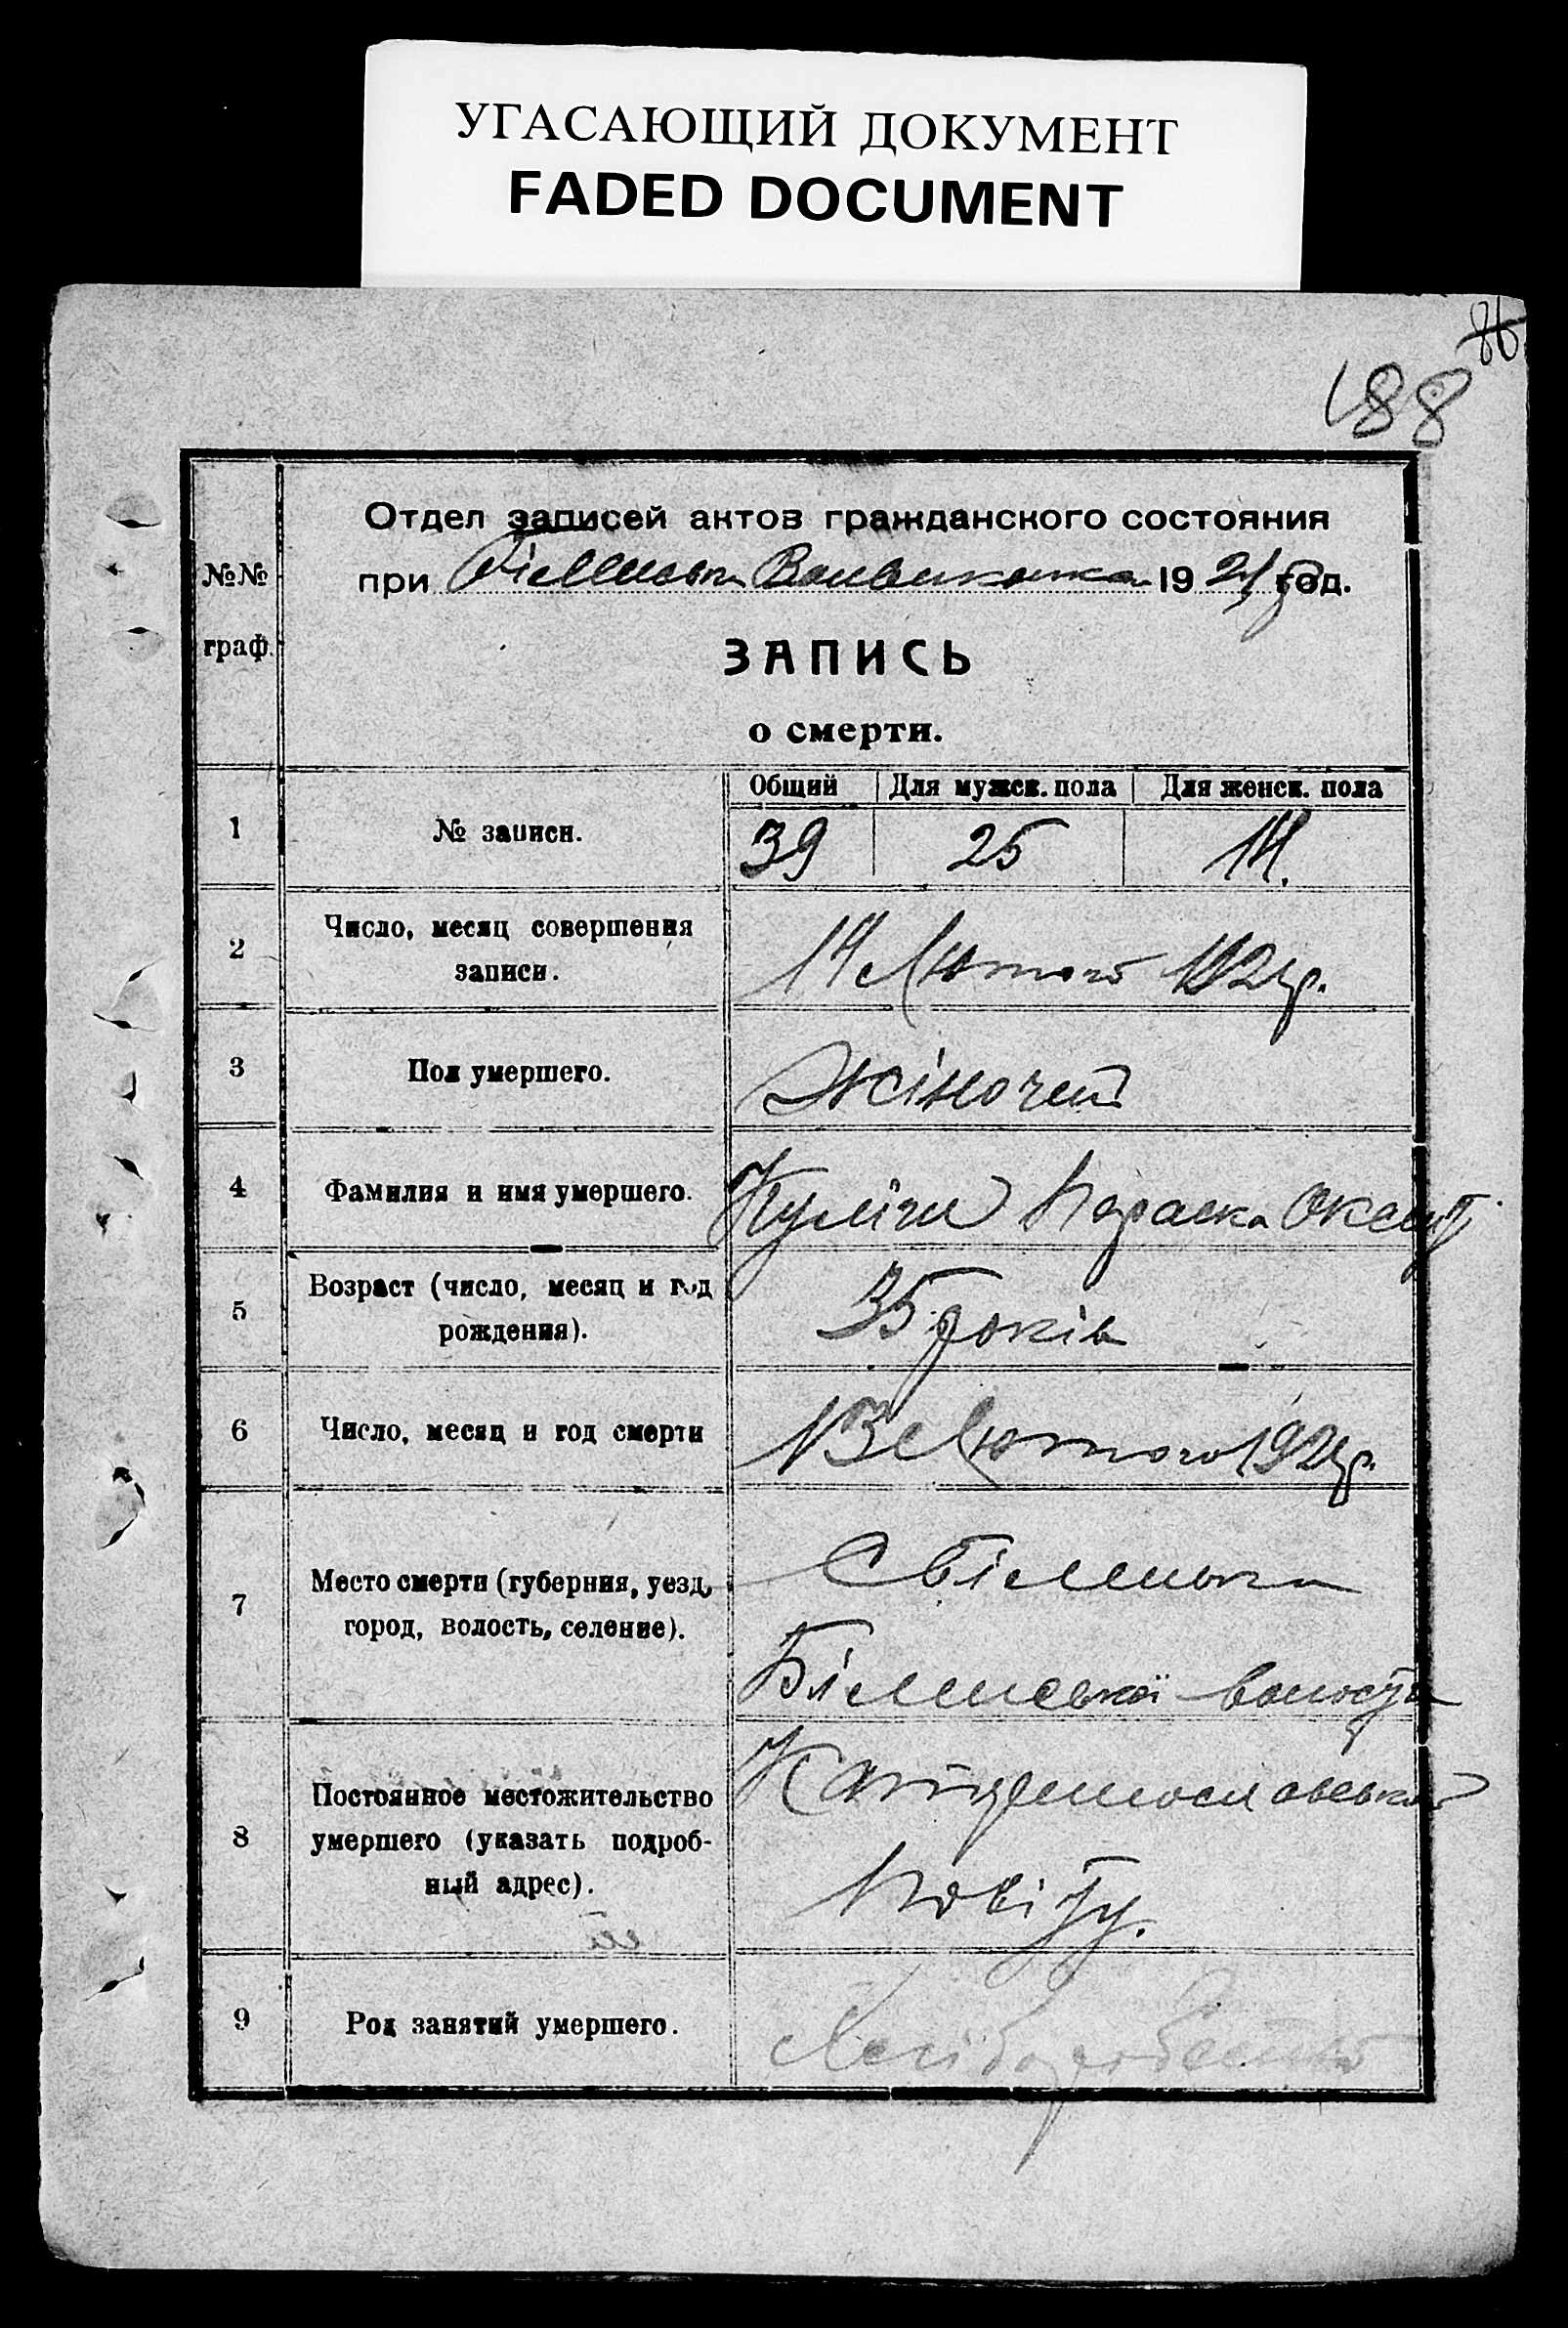 УГАСАЮЩИЙ ДОКУМЕНТ
FADED DOCUMENT
86
88
Отдел записей актов гражданского состояния
при 19 21 год.
№№
граф.
ЗАПИСЬ
о смерти.
Общий Для мужск. пола Для женск. пола
1 № записи. 39 25 14.
2 Число, месяц совершения
записи.
14 Лютого 1921р.
3 Пол умершего. Жіночий
4 Фамилия и имя умершего. Параска
5 Возраст (число, месяц и год
рождения).
35 років
6 Число, месяц и год смерти 13 Лютого 1921р.
7 Место смерти (губерния, уезд,
город, волость, селение).
С
волости
8 Постоянное местожительство
умершего (указать подроб-
ный адрес).
Катеринославськ
Повіту.
9 Род занятий умершего. Хлібороб